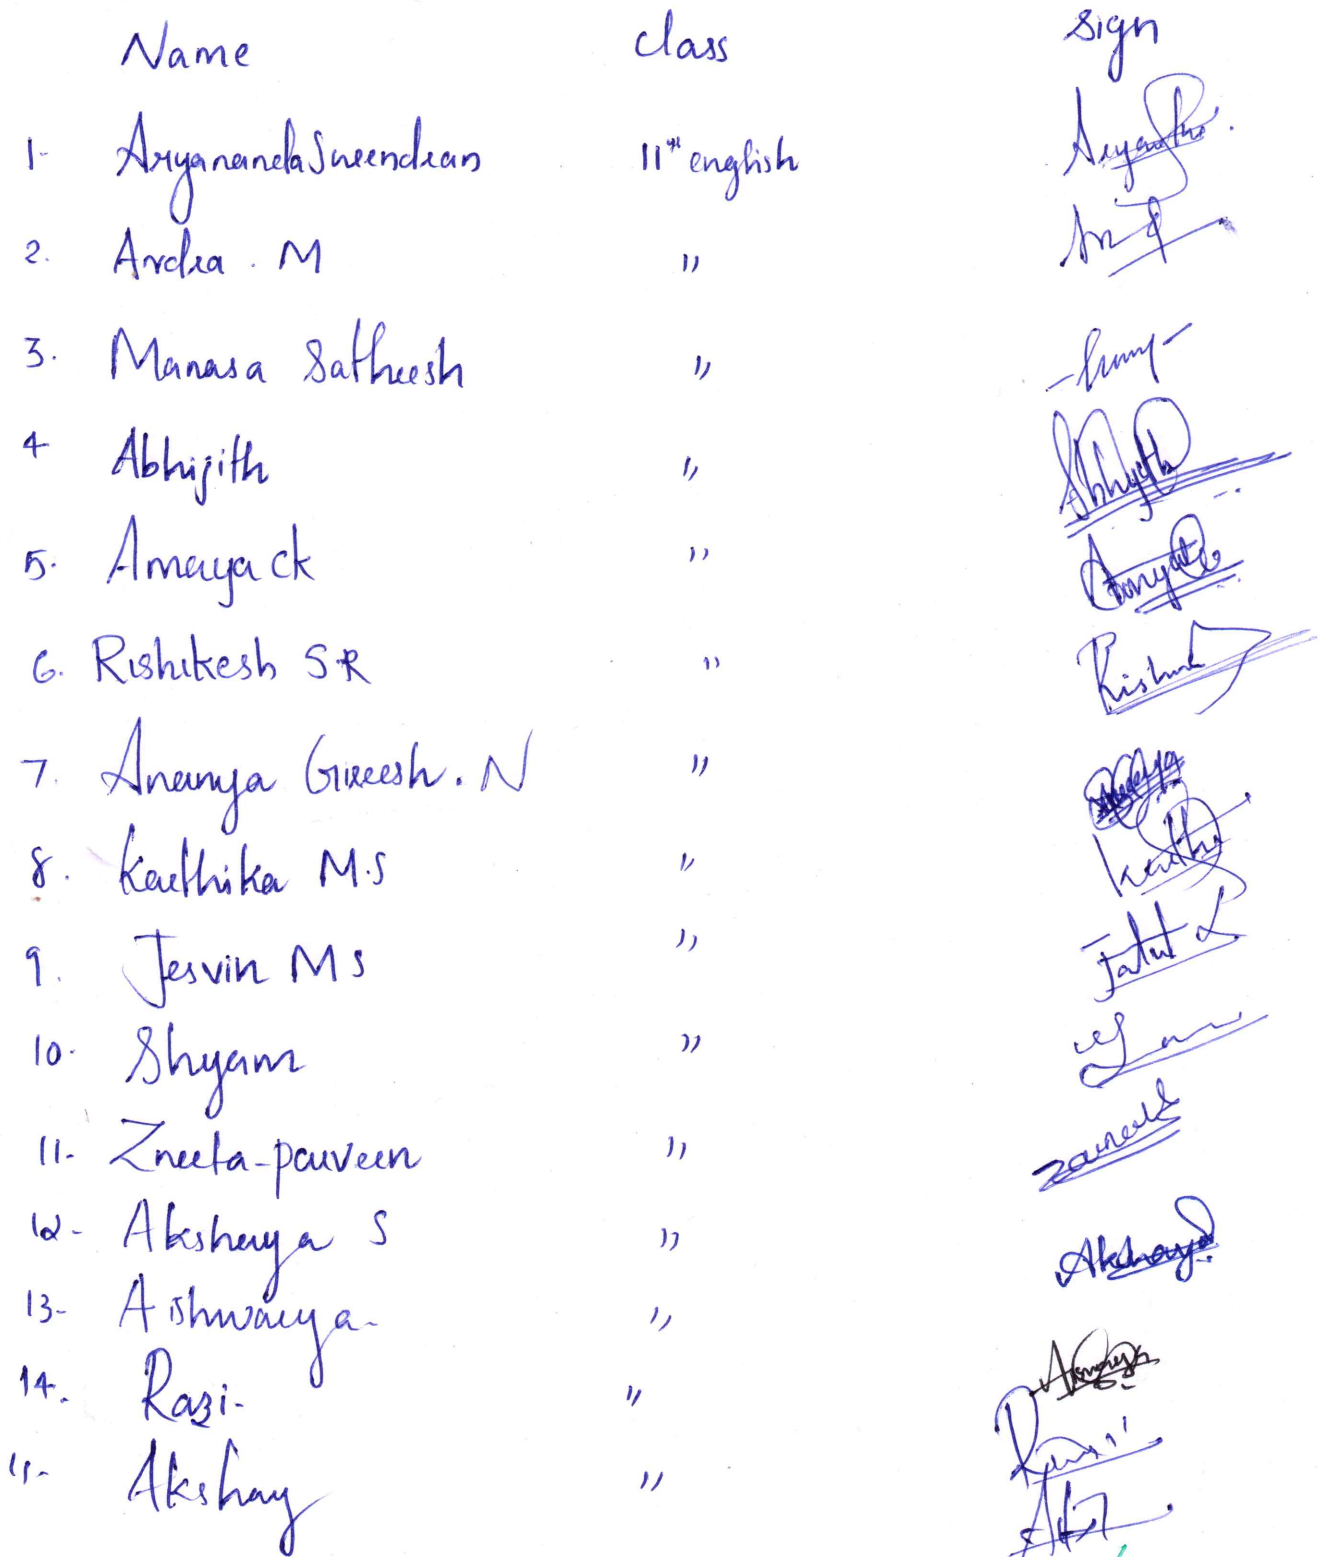 Name class Sign
1- Aryananda Surendran 11th english
2. Ardra . M "
3. Manasa Satheesh " 
4 Abhijith " Abhijith
5. Amaya ck "
6. Rishikesh S R "
7. Ananya Gireesh . N "
8. Karthika M.S "
9. Jesvin M S "
10. Shyam "
11- Zneeta-parveen "
12- Akshaya S " Akshaya
13- Aishwarya- "
14. Razi- "
Akshay "